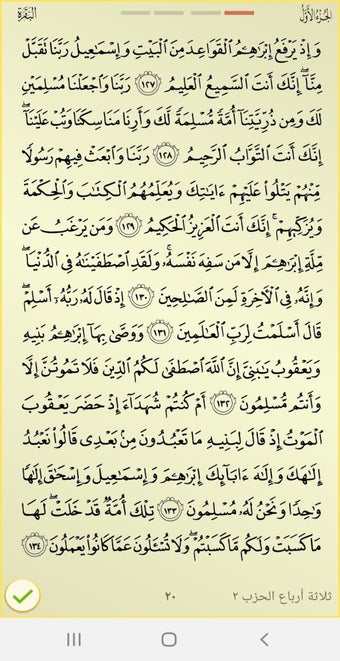 الجزء الأول
البقرة
وَإِذْ يَرْفَعُ إِبْرَٰهِـۧمُ ٱلْقَوَاعِدَ مِنَ ٱلْبَيْتِ وَإِسْمَـٰعِيلُ رَبَّنَا تَقَبَّلْ
مِنَّآ ۖ إِنَّكَ أَنتَ ٱلسَّمِيعُ ٱلْعَلِيمُ ١٢٧ رَبَّنَا وَٱجْعَلْنَا مُسْلِمَيْنِ
لَكَ وَمِن ذُرِّيَّتِنَآ أُمَّةً مُّسْلِمَةً لَّكَ وَأَرِنَا مَنَاسِكَنَا وَتُبْ عَلَيْنَآ ۖ
إِنَّكَ أَنتَ ٱلتَّوَّابُ ٱلرَّحِيمُ ١٢٨ رَبَّنَا وَٱبْعَثْ فِيهِمْ رَسُولًا
مِّنْهُمْ يَتْلُوا۟ عَلَيْهِمْ ءَايَـٰتِكَ وَيُعَلِّمُهُمُ ٱلْكِتَـٰبَ وَٱلْحِكْمَةَ
وَيُزَكِّيهِمْ ۚ إِنَّكَ أَنتَ ٱلْعَزِيزُ ٱلْحَكِيمُ ١٢٩ وَمَن يَرْغَبُ عَن
مِّلَّةِ إِبْرَٰهِـۧمَ إِلَّا مَن سَفِهَ نَفْسَهُۥ ۚ وَلَقَدِ ٱصْطَفَيْنَـٰهُ فِى ٱلدُّنْيَا ۖ
وَإِنَّهُۥ فِى ٱلْـَٔاخِرَةِ لَمِنَ ٱلصَّـٰلِحِينَ ١٣٠ إِذْ قَالَ لَهُۥ رَبُّهُۥٓ أَسْلِمْ ۖ
قَالَ أَسْلَمْتُ لِرَبِّ ٱلْعَـٰلَمِينَ ١٣١ وَوَصَّىٰ بِهَآ إِبْرَٰهِـۧمُ بَنِيهِ
وَيَعْقُوبُ يَـٰبَنِىَّ إِنَّ ٱللَّهَ ٱصْطَفَىٰ لَكُمُ ٱلدِّينَ فَلَا تَمُوتُنَّ إِلَّا
وَأَنتُم مُّسْلِمُونَ ١٣٢ أَمْ كُنتُمْ شُهَدَآءَ إِذْ حَضَرَ يَعْقُوبَ
ٱلْمَوْتُ إِذْ قَالَ لِبَنِيهِ مَا تَعْبُدُونَ مِنۢ بَعْدِى قَالُوا۟ نَعْبُدُ
إِلَـٰهَكَ وَإِلَـٰهَ ءَابَآئِكَ إِبْرَٰهِـۧمَ وَإِسْمَـٰعِيلَ وَإِسْحَـٰقَ إِلَـٰهًا
وَٰحِدًا وَنَحْنُ لَهُۥ مُسْلِمُونَ ١٣٣ تِلْكَ أُمَّةٌ قَدْ خَلَتْ ۖ لَهَا
مَا كَسَبَتْ وَلَكُم مَّا كَسَبْتُمْ ۖ وَلَا تُسْـَٔلُونَ عَمَّا كَانُوا۟ يَعْمَلُونَ ١٣٤
ثلاثة أرباع الحزب ٢
٢٠